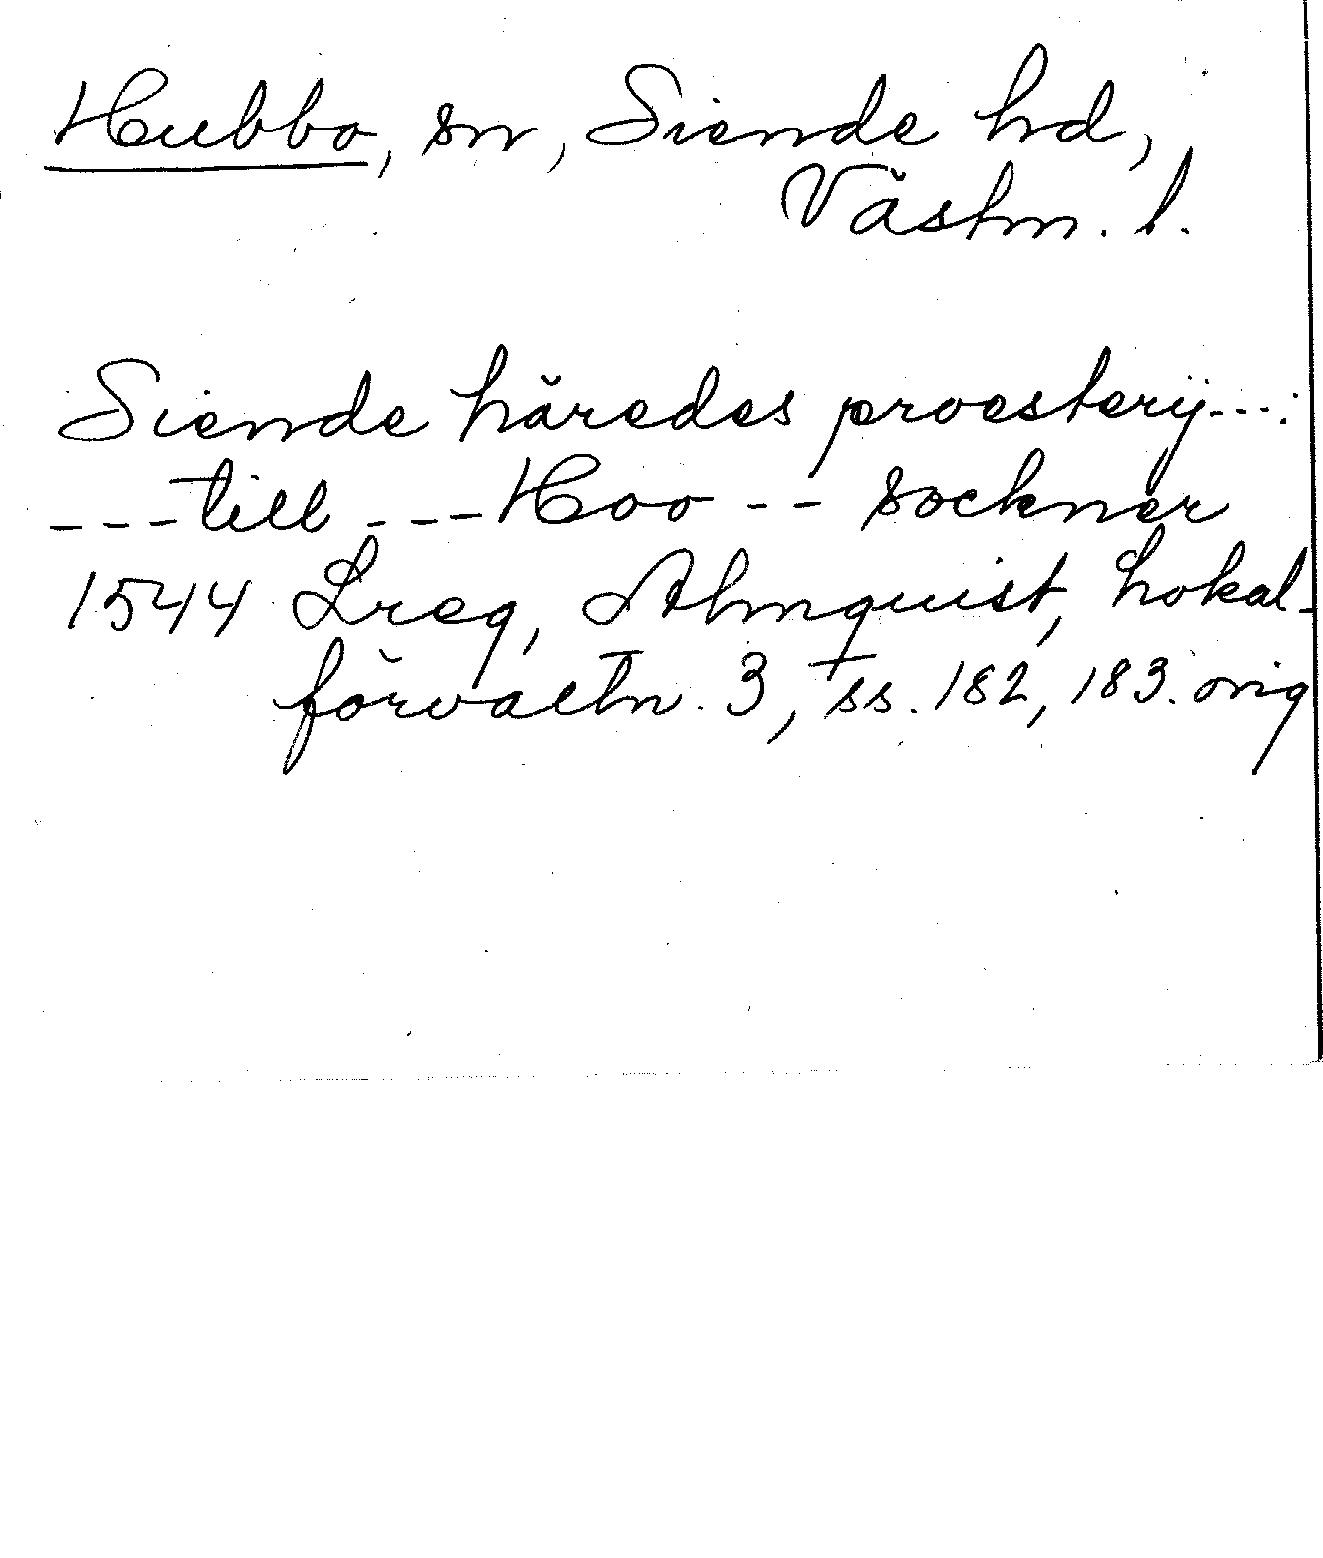 Hubbo, sn, Siende hd,
Västm. l.
Siende häredes proesterij---:
---till ---Hoo -- sockner
1544 Lreg, Almquist, Lokal-
förvaltn. 3, ss. 182, 183. orig